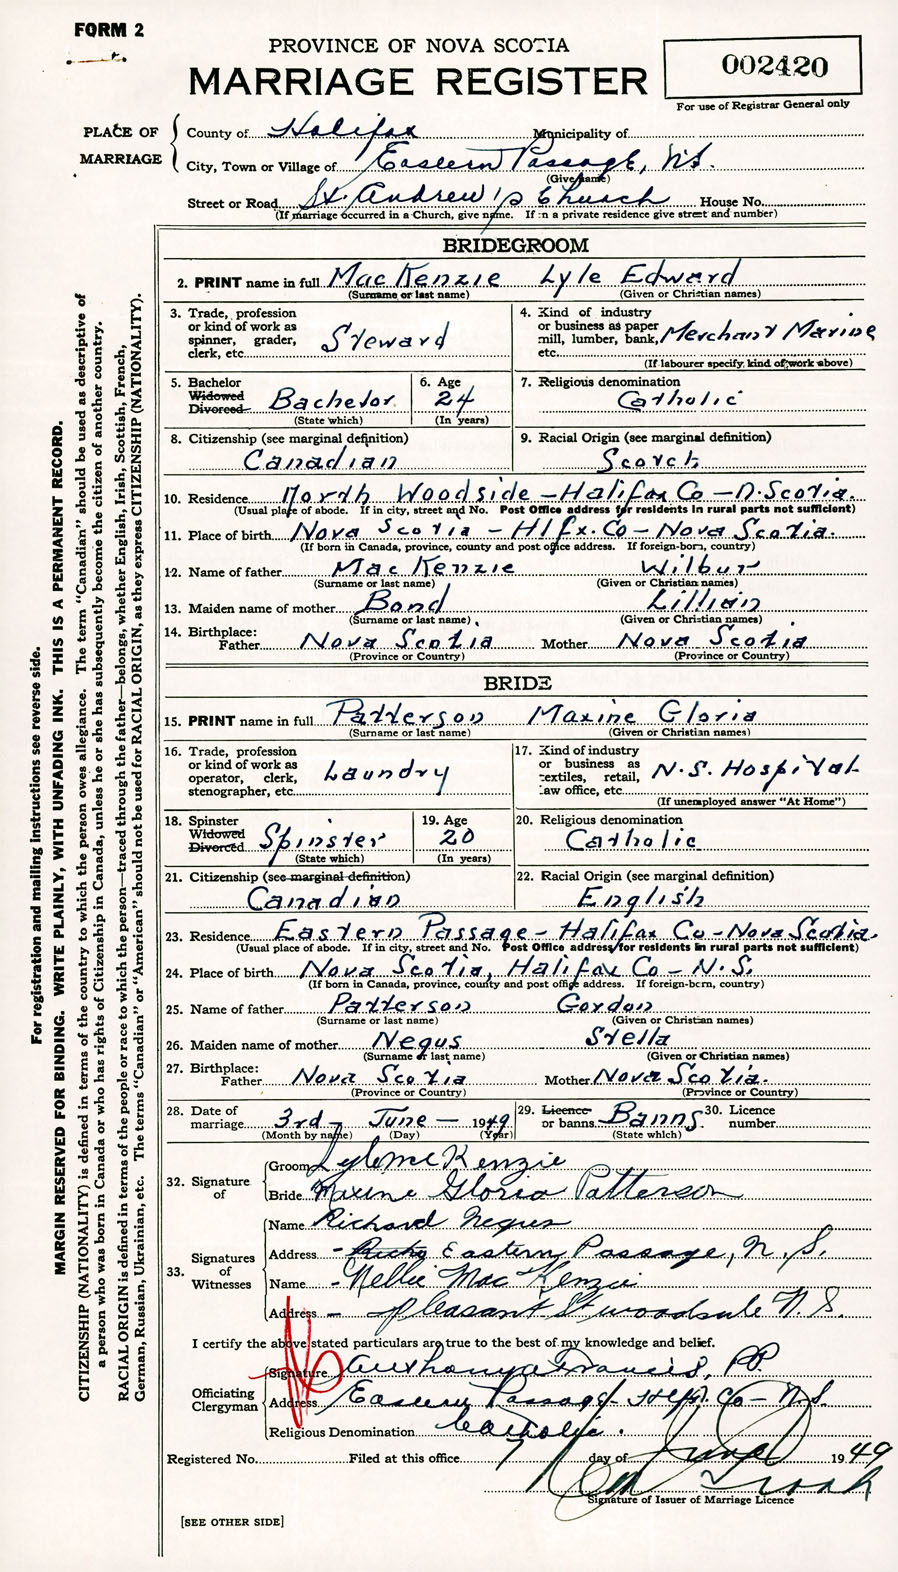 FORM 2
PROVINCE OF NOVA SCOTIA
MARRIAGE REGISTER
002420
For use of Registrar General only
PLACE OF MARRIAGE
County of Halifax Municipality of
City, Town or Village of Eastern Passage, N.S.
(Give name)
Street or Road St. Andrew's Church House No.
(If marriage occurred in a Church, give name. If in a private residence give street and number)
BRIDEGROOM
2. PRINT name in full MacKenzie Lyle Edward
(Surname or last name) (Given or Christian names)
3. Trade, profession or kind of work as spinner, grader, clerk, etc. Steward
4. Kind of industry or business as paper mill, lumber, bank, etc. Merchant Marine
(If labourer specify kind of work above)
5. Bachelor Widowed Divorced Bachelor
(State which)
6. Age 24
(In years)
7. Religious denomination Catholic
8. Citizenship (see marginal definition) Canadian
9. Racial Origin (see marginal definition) Scotch
10. Residence North Woodside - Halifax Co - N. Scotia.
(Usual place of abode. If in city, street and No. Post Office address for residents in rural parts not sufficient)
11. Place of birth Nova Scotia - Hlfx. Co - Nova Scotia.
(If born in Canada, province, county and post office address. If foreign-born, country)
12. Name of father MacKenzie Wilbur
(Surname or last name) (Given or Christian names)
13. Maiden name of mother Bond Lillian
(Surname or last name) (Given or Christian names)
14. Birthplace: Father Nova Scotia Mother Nova Scotia
(Province or Country) (Province or Country)
BRIDE
15. PRINT name in full Patterson Maxine Gloria
(Surname or last name) (Given or Christian names)
16. Trade, profession or kind of work as operator, clerk, stenographer, etc. Laundry
17. Kind of industry or business as textiles, retail, law office, etc. N.S. Hospital
(If unemployed answer "At Home")
18. Spinster Widowed Divorced Spinster
(State which)
19. Age 20
(In years)
20. Religious denomination Catholic
21. Citizenship (see marginal definition) Canadian
22. Racial Origin (see marginal definition) English
23. Residence Eastern Passage - Halifax Co - Nova Scotia.
(Usual place of abode. If in city, street and No. Post Office address for residents in rural parts not sufficient)
24. Place of birth Nova Scotia, Halifax Co - N.S.
(If born in Canada, province, county and post office address. If foreign-born, country)
25. Name of father Patterson Gordon
(Surname or last name) (Given or Christian names)
26. Maiden name of mother Negus Stella
(Surname or last name) (Given or Christian names)
27. Birthplace: Father Nova Scotia Mother Nova Scotia.
(Province or Country) (Province or Country)
28. Date of marriage 3rd - June - 1949
(Month by name) (Day) (Year)
29. Licence or banns Banns
(State which)
30. Licence number
32. Signature of
Groom Lyle McKenzie
Bride Maxine Gloria Patterson
33. Signatures of Witnesses
Name Richard Negus
Address - Eastern Passage, N.S.
Name - Nellie MacKenzie
Address - Pleasant St Woodside N.S.
I certify the above stated particulars are true to the best of my knowledge and belief.
Officiating Clergyman
Signature Francis, P.P.
Address Eastern Passage Hlfx. Co - N.S.
Religious Denomination Catholic.
Registered No. Filed at this office 7 day of June 1949
Signature of Issuer of Marriage Licence
[SEE OTHER SIDE]
For registration and mailing instructions see reverse side.
MARGIN RESERVED FOR BINDING. WRITE PLAINLY, WITH UNFADING INK. THIS IS A PERMANENT RECORD.
CITIZENSHIP (NATIONALITY) is defined in terms of the country to which the person owes allegiance. The term "Canadian" should be used as descriptive of
a person who was born in Canada or who has rights of Citizenship in Canada, unless he or she has subsequently become the citizen of another country.
RACIAL ORIGIN is defined in terms of the people or race to which the person—traced through the father—belongs, whether English, Irish, Scottish, French,
German, Russian, Ukrainian, etc. The terms "Canadian" or "American" should not be used for RACIAL ORIGIN, as they express CITIZENSHIP (NATIONALITY).